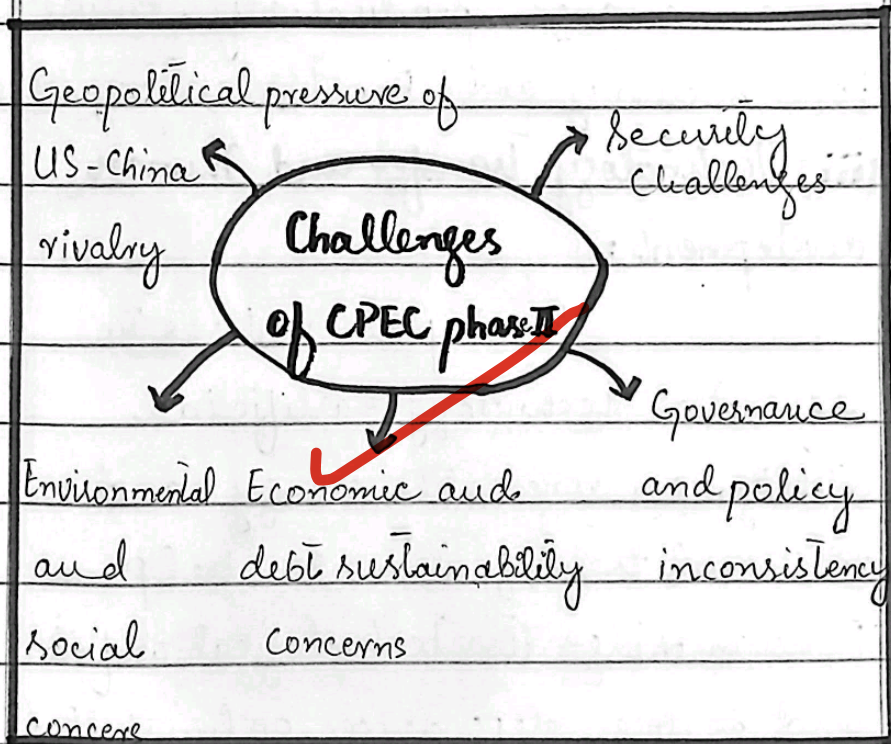 Geopolitical pressure of
US-China
rivalry
Security
Challenges
Challenges
of CPEC phase II
Governance
and policy
inconsistency
Economic and
debt sustainability
concerns
Environmental
and
social
concers